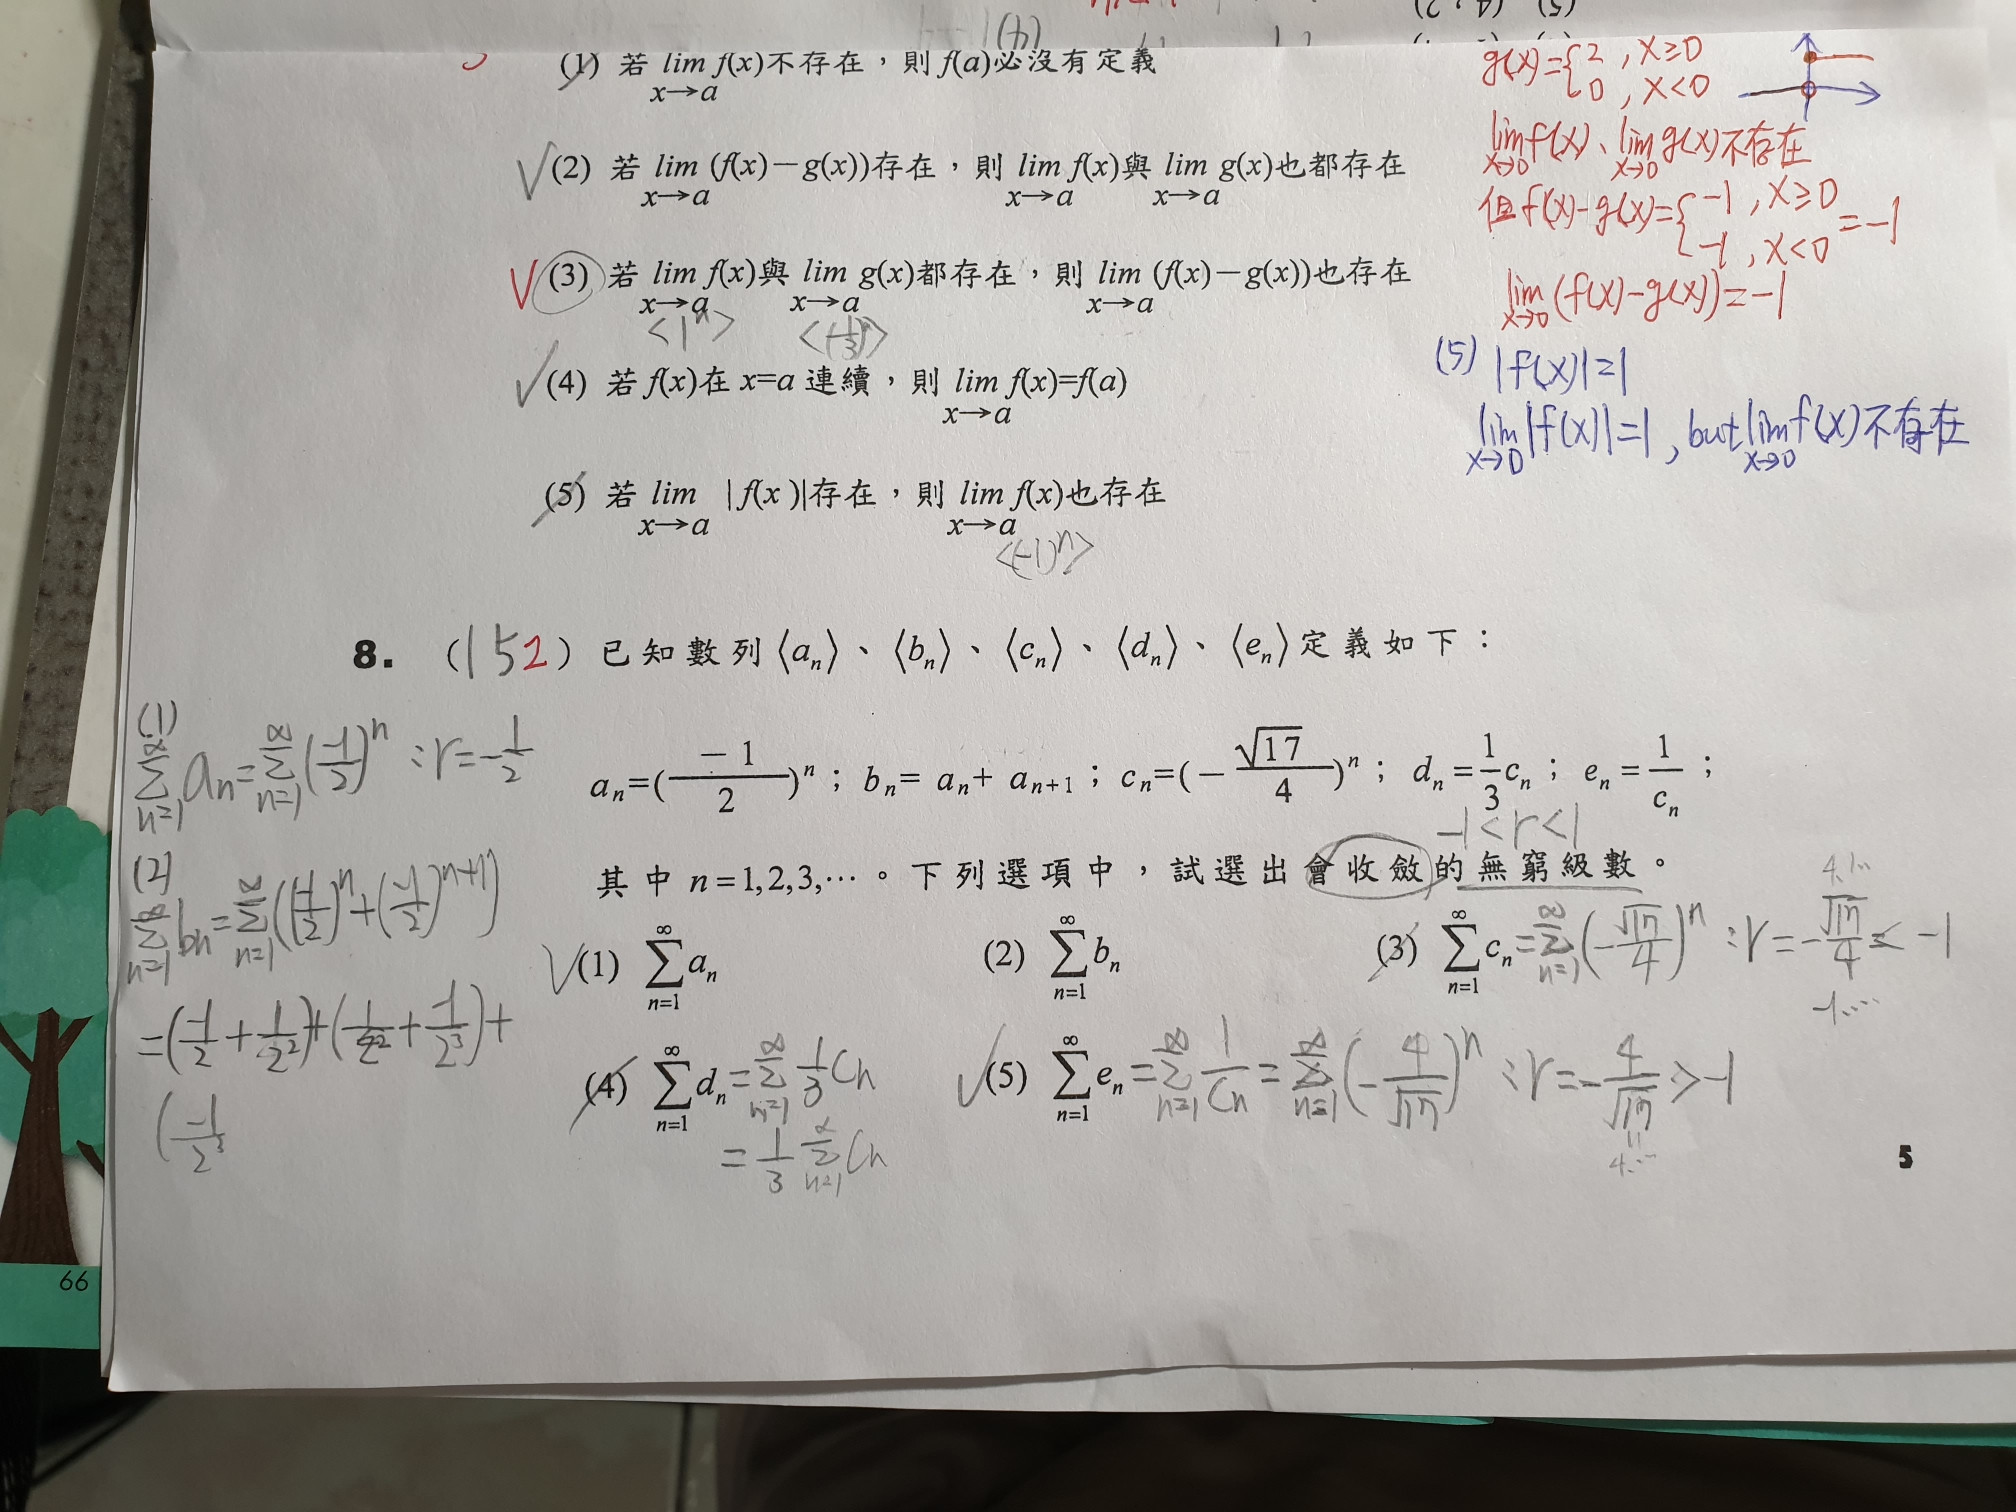 (1) 若 lim f(x)不存在，則 f(a)必沒有定義
x→a
(2) 若 lim (f(x)−g(x))存在，則 lim f(x)與 lim g(x)也都存在
x→a x→a x→a
(3) 若 lim f(x)與 lim g(x)都存在，則 lim (f(x)−g(x))也存在
x→a x→a x→a
<1ⁿ>
(4) 若 f(x)在 x=a 連續，則 lim f(x)=f(a)
x→a
(5) 若 lim |f(x)|存在，則 lim f(x)也存在
x→a x→a
<(-1)ⁿ>
g(x)={2 , x≥0
0 , x<0
lim f(x)、lim g(x)不存在
x→0 x→0
但 f(x)-g(x)={-1 , x≥0
-1 , x<0 =-1
lim (f(x)-g(x))=-1
x→0
(5) |f(x)|=1
lim |f(x)|=1 , but lim f(x)不存在
x→0 x→0
8. (152) 已知數列⟨aₙ⟩、⟨bₙ⟩、⟨cₙ⟩、⟨dₙ⟩、⟨eₙ⟩定義如下：
aₙ=(−1/2)ⁿ；bₙ= aₙ+ aₙ₊₁；cₙ=(−√17/4)ⁿ；dₙ=1/3cₙ；eₙ=1/cₙ；
-1<r<1
其中 n=1,2,3,⋯。下列選項中，試選出會收斂的無窮級數。
(1) ∞∑n=1 aₙ
(2) ∞∑n=1 bₙ
(3) ∞∑n=1 cₙ =∞∑n=1(-√17/4)ⁿ ∵r=-√17/4<-1
4.1…
-1…
(4) ∞∑n=1 dₙ =∞∑n=1 1/3 Cn
=1/3 ∞∑n=1 Cn
(5) ∞∑n=1 eₙ =∞∑n=1 1/Cn =∞∑n=1(-4/√17)ⁿ ∵r=-4/√17>-1
4.…
(1)
∞∑n=1 an=∞∑n=1(-1/2)ⁿ ∵r=-1/2
(2)
∞∑n=1 bn=∞∑n=1((-1/2)ⁿ+(-1/2)ⁿ⁺¹)
=(-1/2+1/2²)+(1/2²+-1/2³)+
(-1/2³
5
66